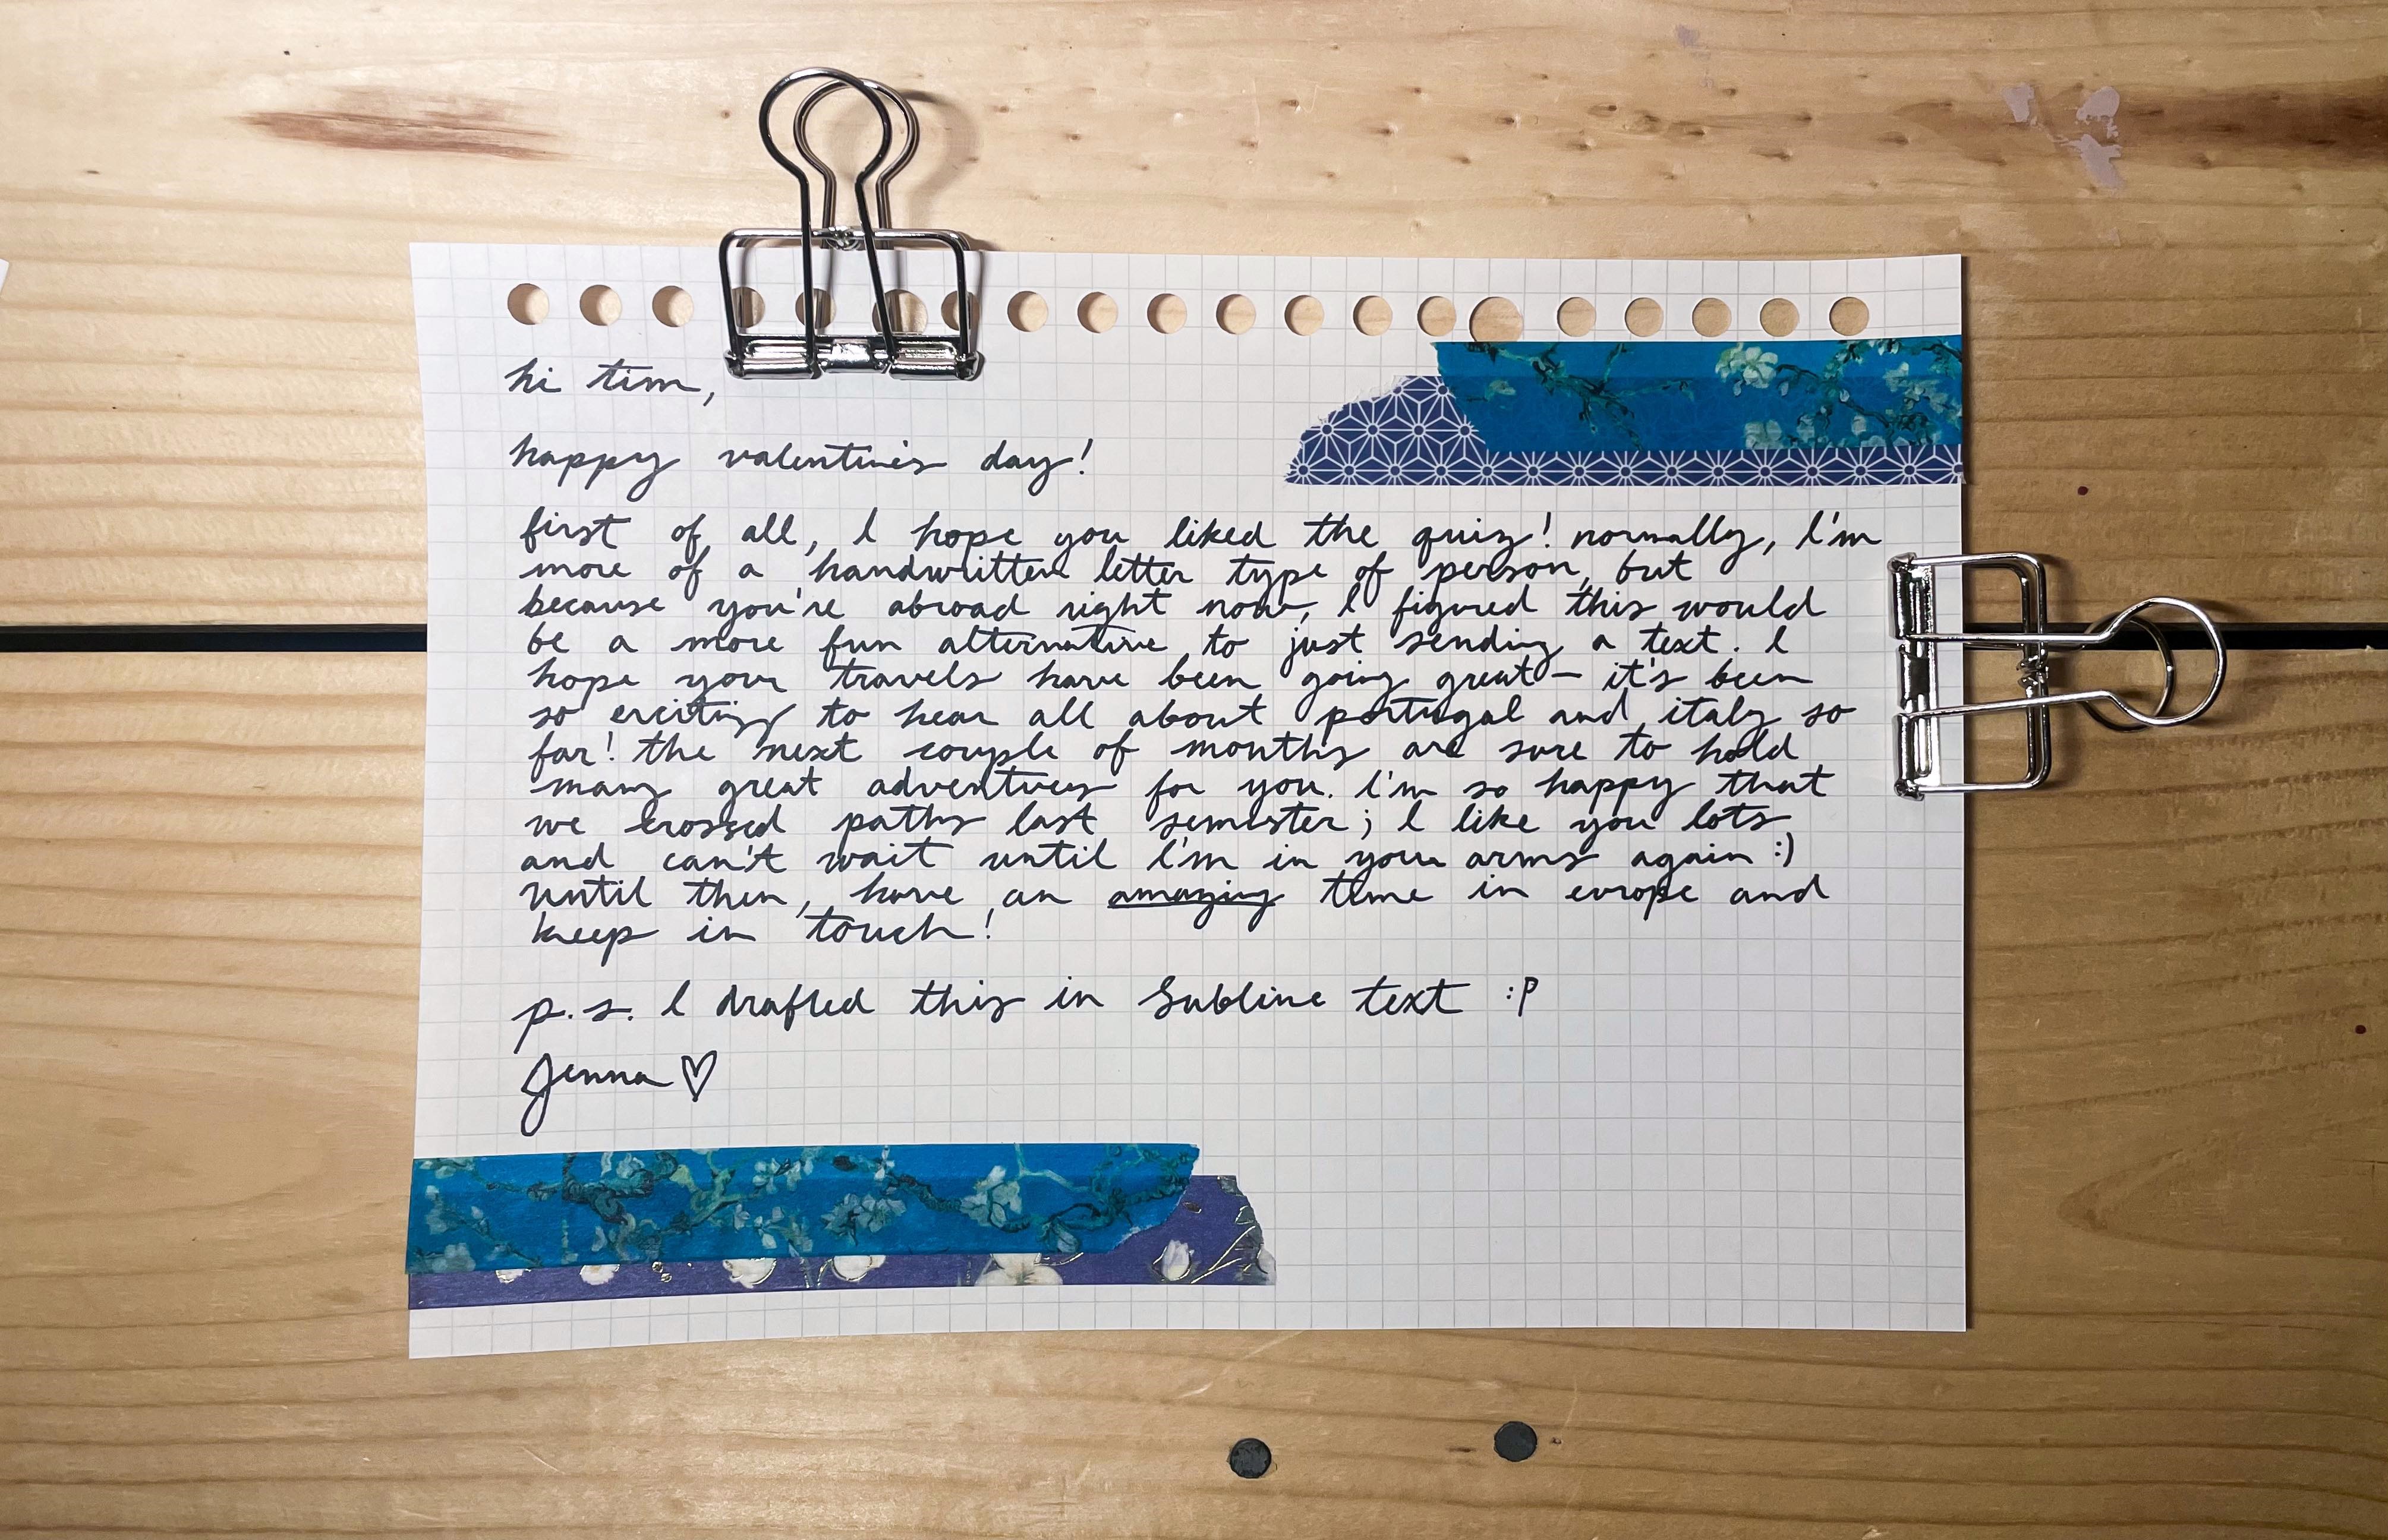 hi tim,
happy valentine's day!
first of all, I hope you liked the quiz! normally, I'm
more of a handwritten letter type of person, but
because you're abroad right now, I figured this would
be a more fun alternative to just sending a text. I
hope your travels have been going great – it's been
so exciting to hear all about portugal and italy so
far! the next couple of months are sure to hold
many great adventures for you. I'm so happy that
we crossed paths last semester; I like you lots
and can't wait until I'm in your arms again :)
until then, have an amazing time in europe and
keep in touch!
p.s. I drafted this in Sublime text :P
Jenna ♡